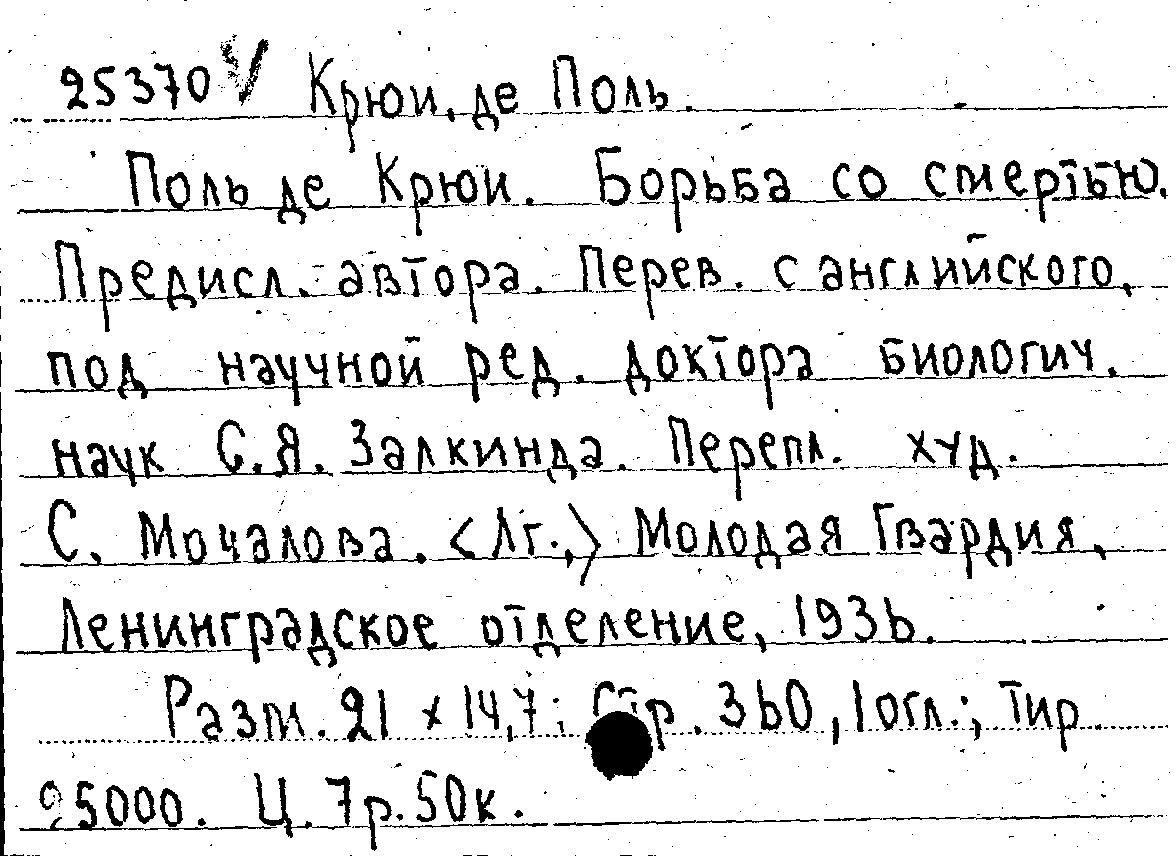 25370 Крюи, де Поль.
Поль де Крюи. Борьба со смертью.
Предисл. автора. Перев. с английского,
под научной ред. доктора биологич.
наук С.Я. Залкинда. Перепл. худ.
С. Мочалова. <Лг.,> Молодая Гвардия,
Ленинградское отделение, 1936.
Разм. 21 x 14,7; Стр. 360, 1 огл.; Тир.
25000. Ц. 7р. 50к.